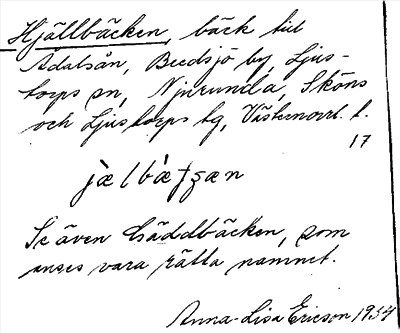 Hjällbäcken, bäck till
Ådalsån, Bredsjö by, Ljus-
torps sn, Njurunda, Sköns
och Ljustorps tg, Västernorrl. l.
17
Se även Gäddbäcken, som
anses vara rätta namnet.
Anna-Lisa Ericson 1934